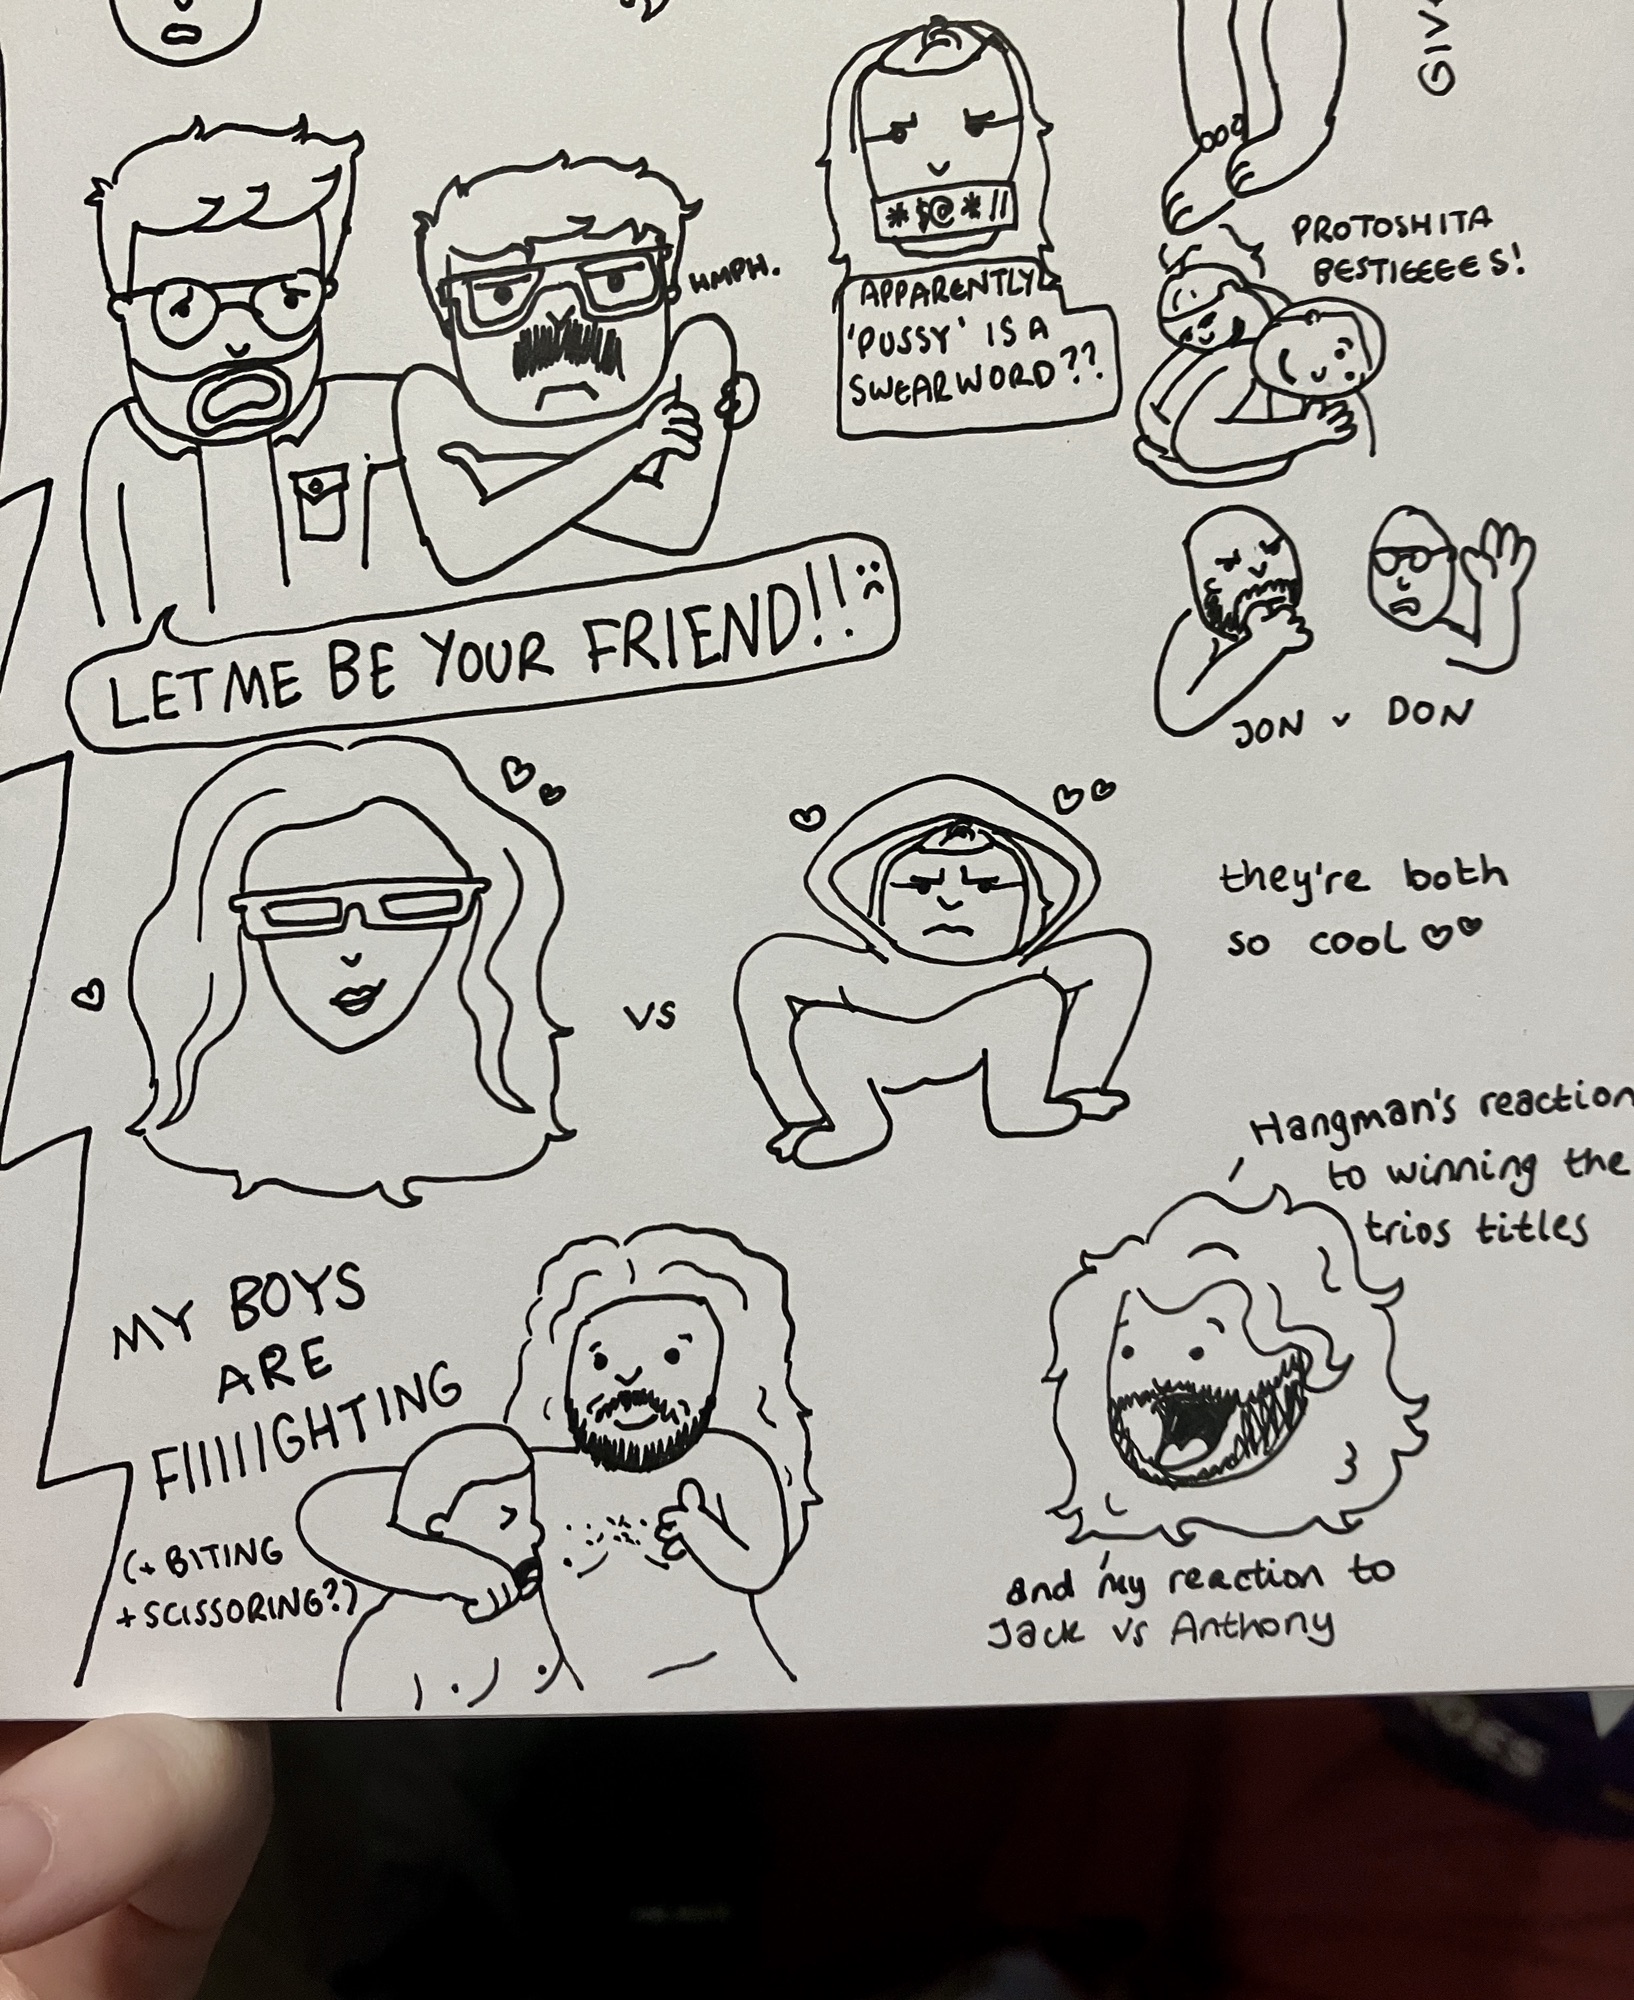 GIV
HMPH.
*$@*!!
APPARENTLY
'PUSSY' IS A
SWEARWORD??
PROTOSHITA
BESTIEEEES!
LET ME BE YOUR FRIEND!! :(
JON v DON
vs
they're both
so cool ♡♡
Hangman's reaction
to winning the
trios titles
MY BOYS
ARE
FIIIIIGHTING
(+ BITING
+ SCISSORING?)
and my reaction to
Jack vs Anthony